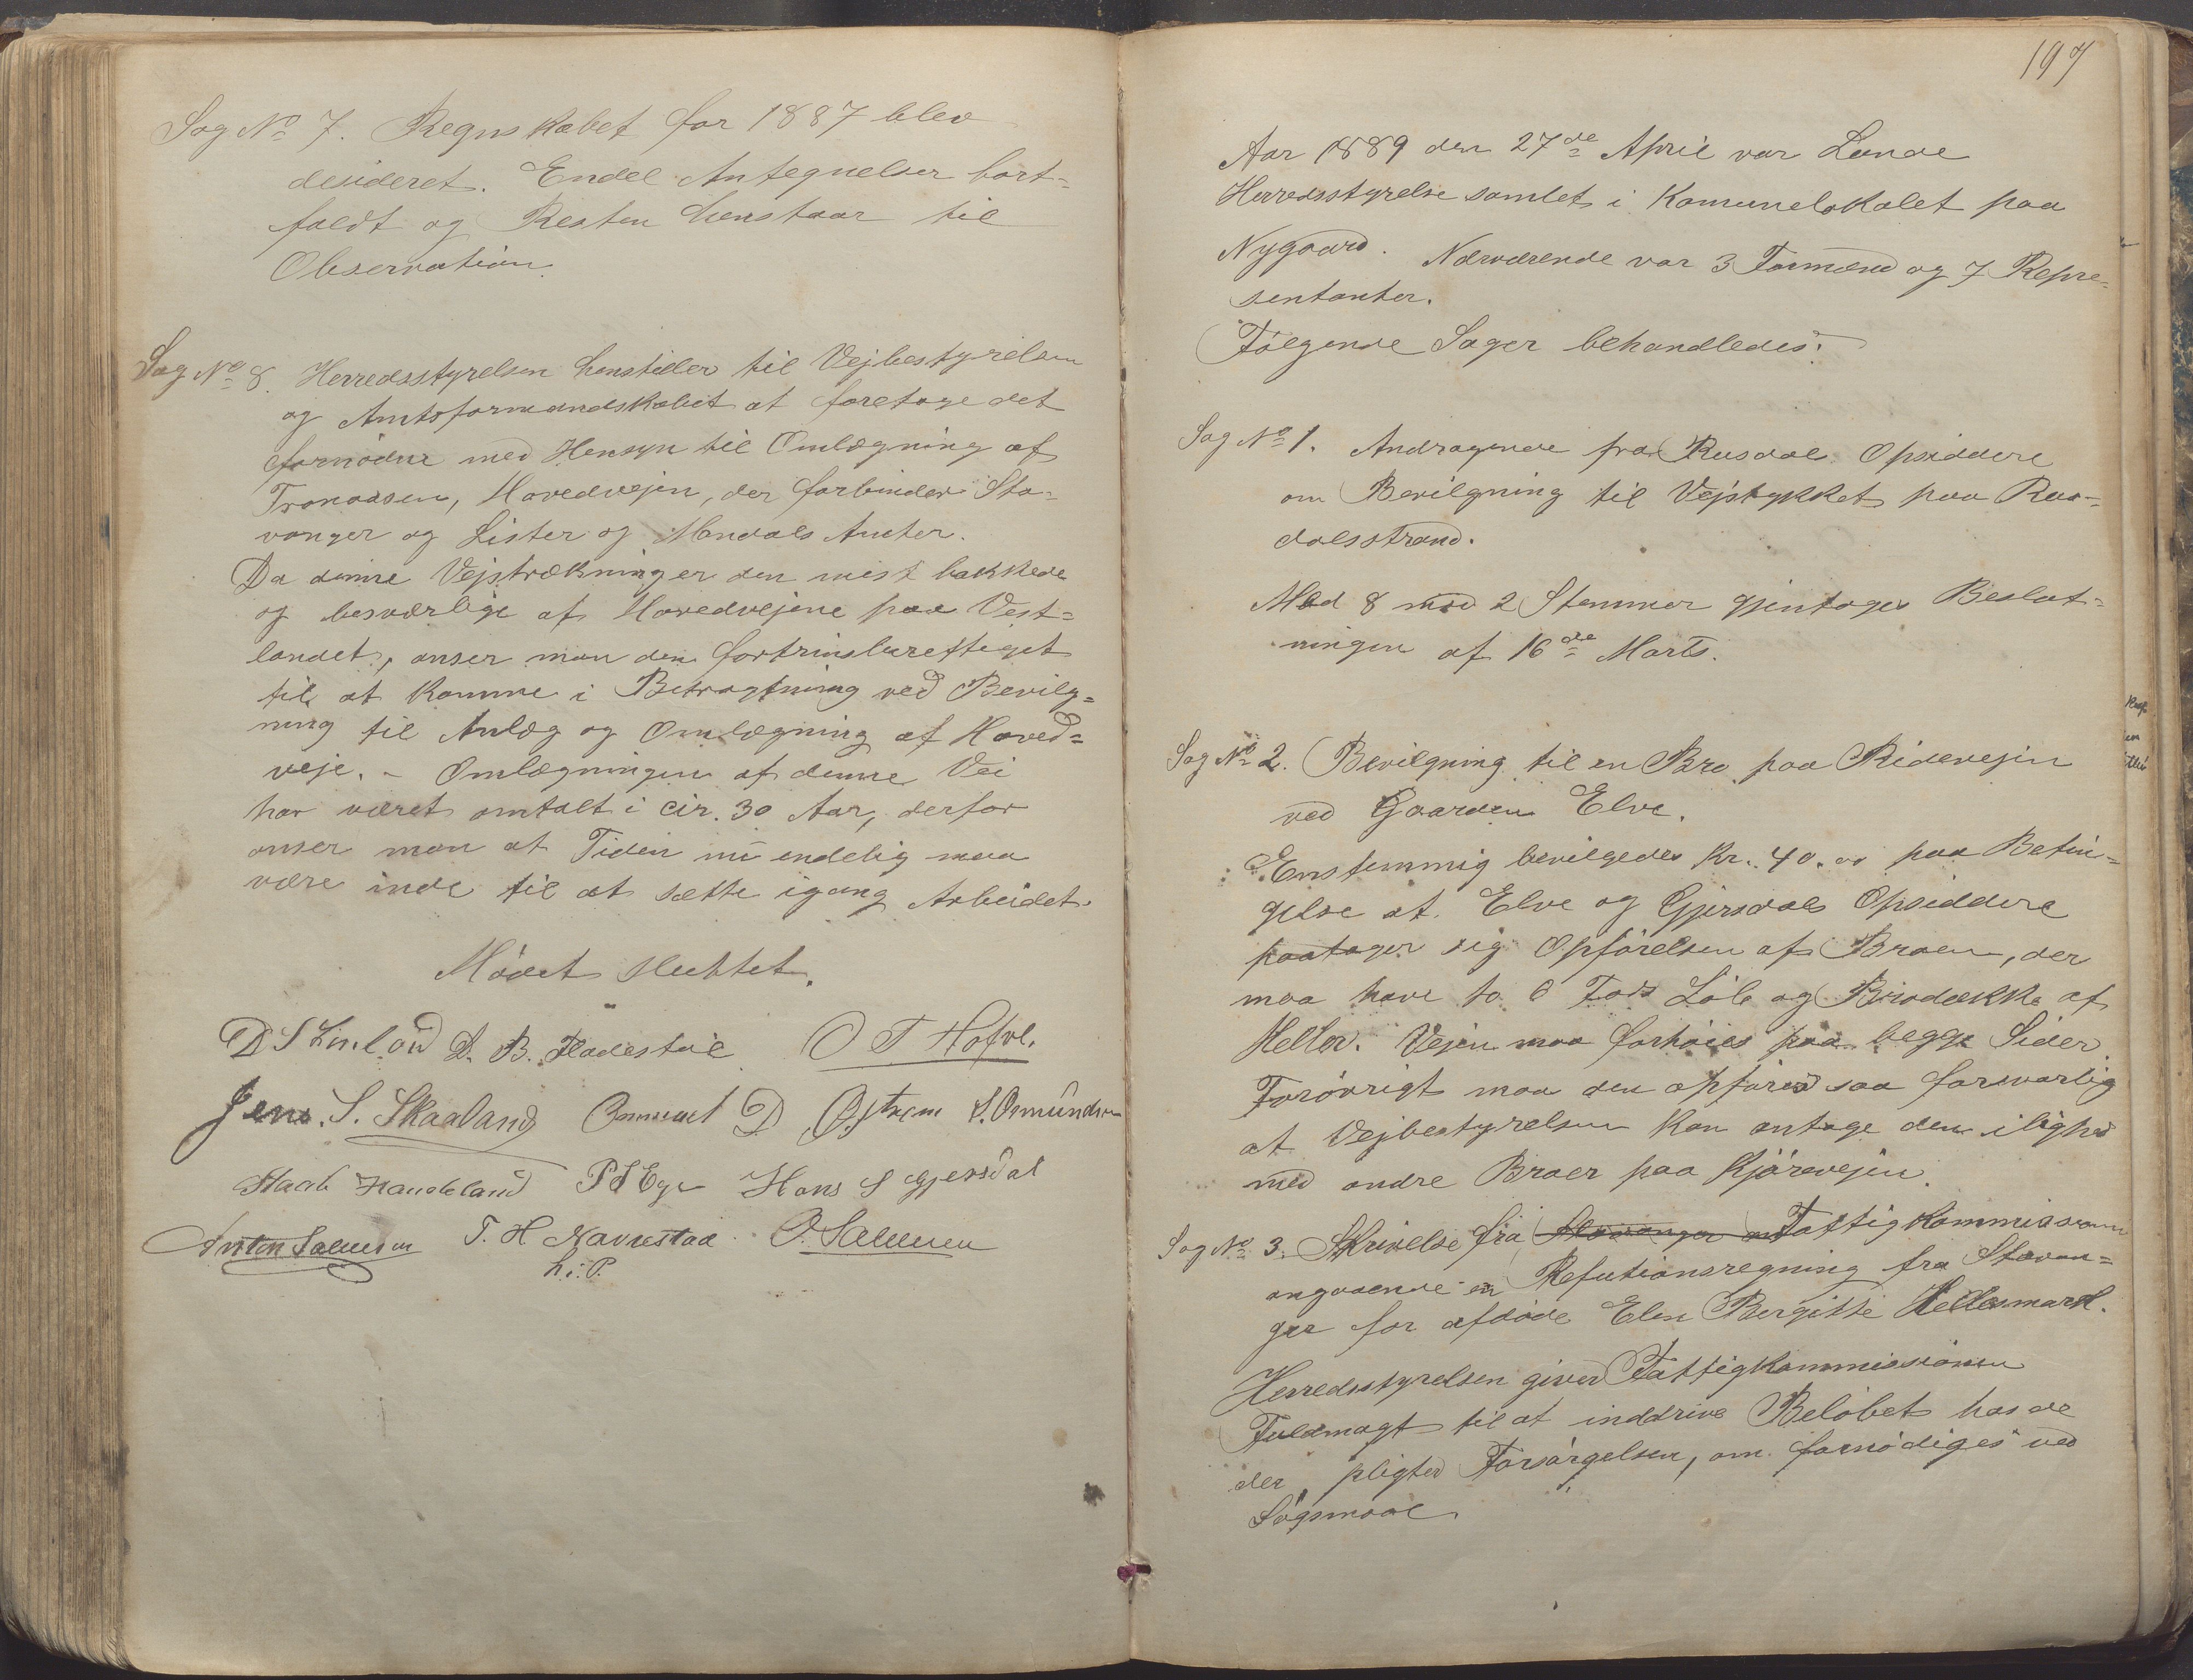 Sag No 7. Regnskabet for 1887 blev
desideret. Endel Antegnelser bort=
faldt og Resten henstaar til
Observation.
Sag No 8. Herredsstyrelsen henstiller til Vejbestyrelsen
og Amtsformandskabet at foretage det
fornødne med Hensyn til Omlægning af
Tronaasen, Hovedvejen, der forbinder Sta=
vanger og Lister og Mandals Amter.
Da denne Vejstrækning er den mest bakkede
og besværlige af Hovedvejene paa Vest=
landet, anser man den fortrinsberettiget
til at komme i Betragtning ved Bevilg=
ning til Anlæg og Omlægning af Hoved=
veje. – Omlægningen af denne Vei
har været omtalt i cir. 30 Aar, derfor
anser man at Tiden nu endelig maa
være inde til at sætte igang Arbeidet.
Mødet sluttet.
D S Linland D. B. Hadestøl O T Hofve.
Jens. S. Skaaland D Østrem S. Omundsen
Staale Haueland P S Ege Hans S Gjersdal
Anton Salvesen T. H Navrestad O. Salvesen
h. i. P.
197
Aar 1889 den 27de April var Lunde
Herredsstyrelse samlet i Komunelokalet paa
Nygaard. Nærværende var 3 Formænd og 7 Repre=
sentanter.
Følgende Sager behandledes:
Sag No 1. Andragende fra Rusdals Opsiddere
om Bevilgning til Vejstykket paa Rus=
dalsstrand.
Med 8 mod 2 Stemmer gjentoges Beslut=
ningen af 16de Marts.
Sag No 2. Bevilgning til en Bro paa Ridevejen
ved Gaarden Elve.
Enstemmig bevilgedes Kr. 40.00 paa Betin=
gelse at Elve og Gjersdals Opsiddere
paatager sig Opførelsen af Broen, der
maa have to 6 Fods Løb og Brodække af
Heller. Vejen maa forhøies paa begge Sider.
Forøvrigt maa den opføres saa forsvarlig
at Vejbestyrelsen kan antage den ilighed
med andre Broer paa Kjørevejen.
Sag No 3. Skrivelse fra Stavanger Fattigkommissionen
angaaende en Refutionsregning fra Stavan=
ger for afdøde Elen Bergitte Hellesmark.
Herredsstyrelsen giver Fattigkommissionen
Fuldmagt til at inddrive Beløbet hos de
der pligter Forsørgelsen, om fornødiges ved
Søgsmaal.